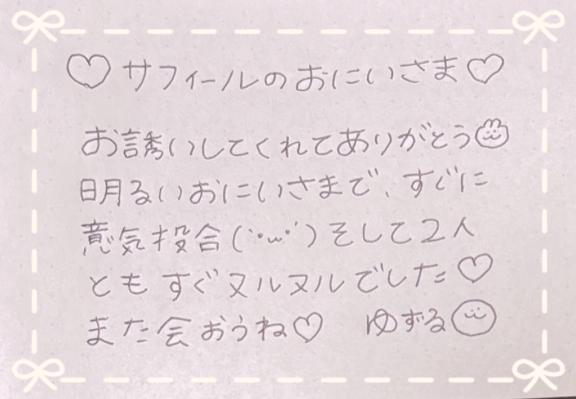 ♡サフィールのおにいさま♡
お誘いしてくれてありがとう
明るいおにいさまで、すぐに
意気投合(´•ω•`)そして2人
ともすぐヌルヌルでした♡
また会おうね♡ ゆずる